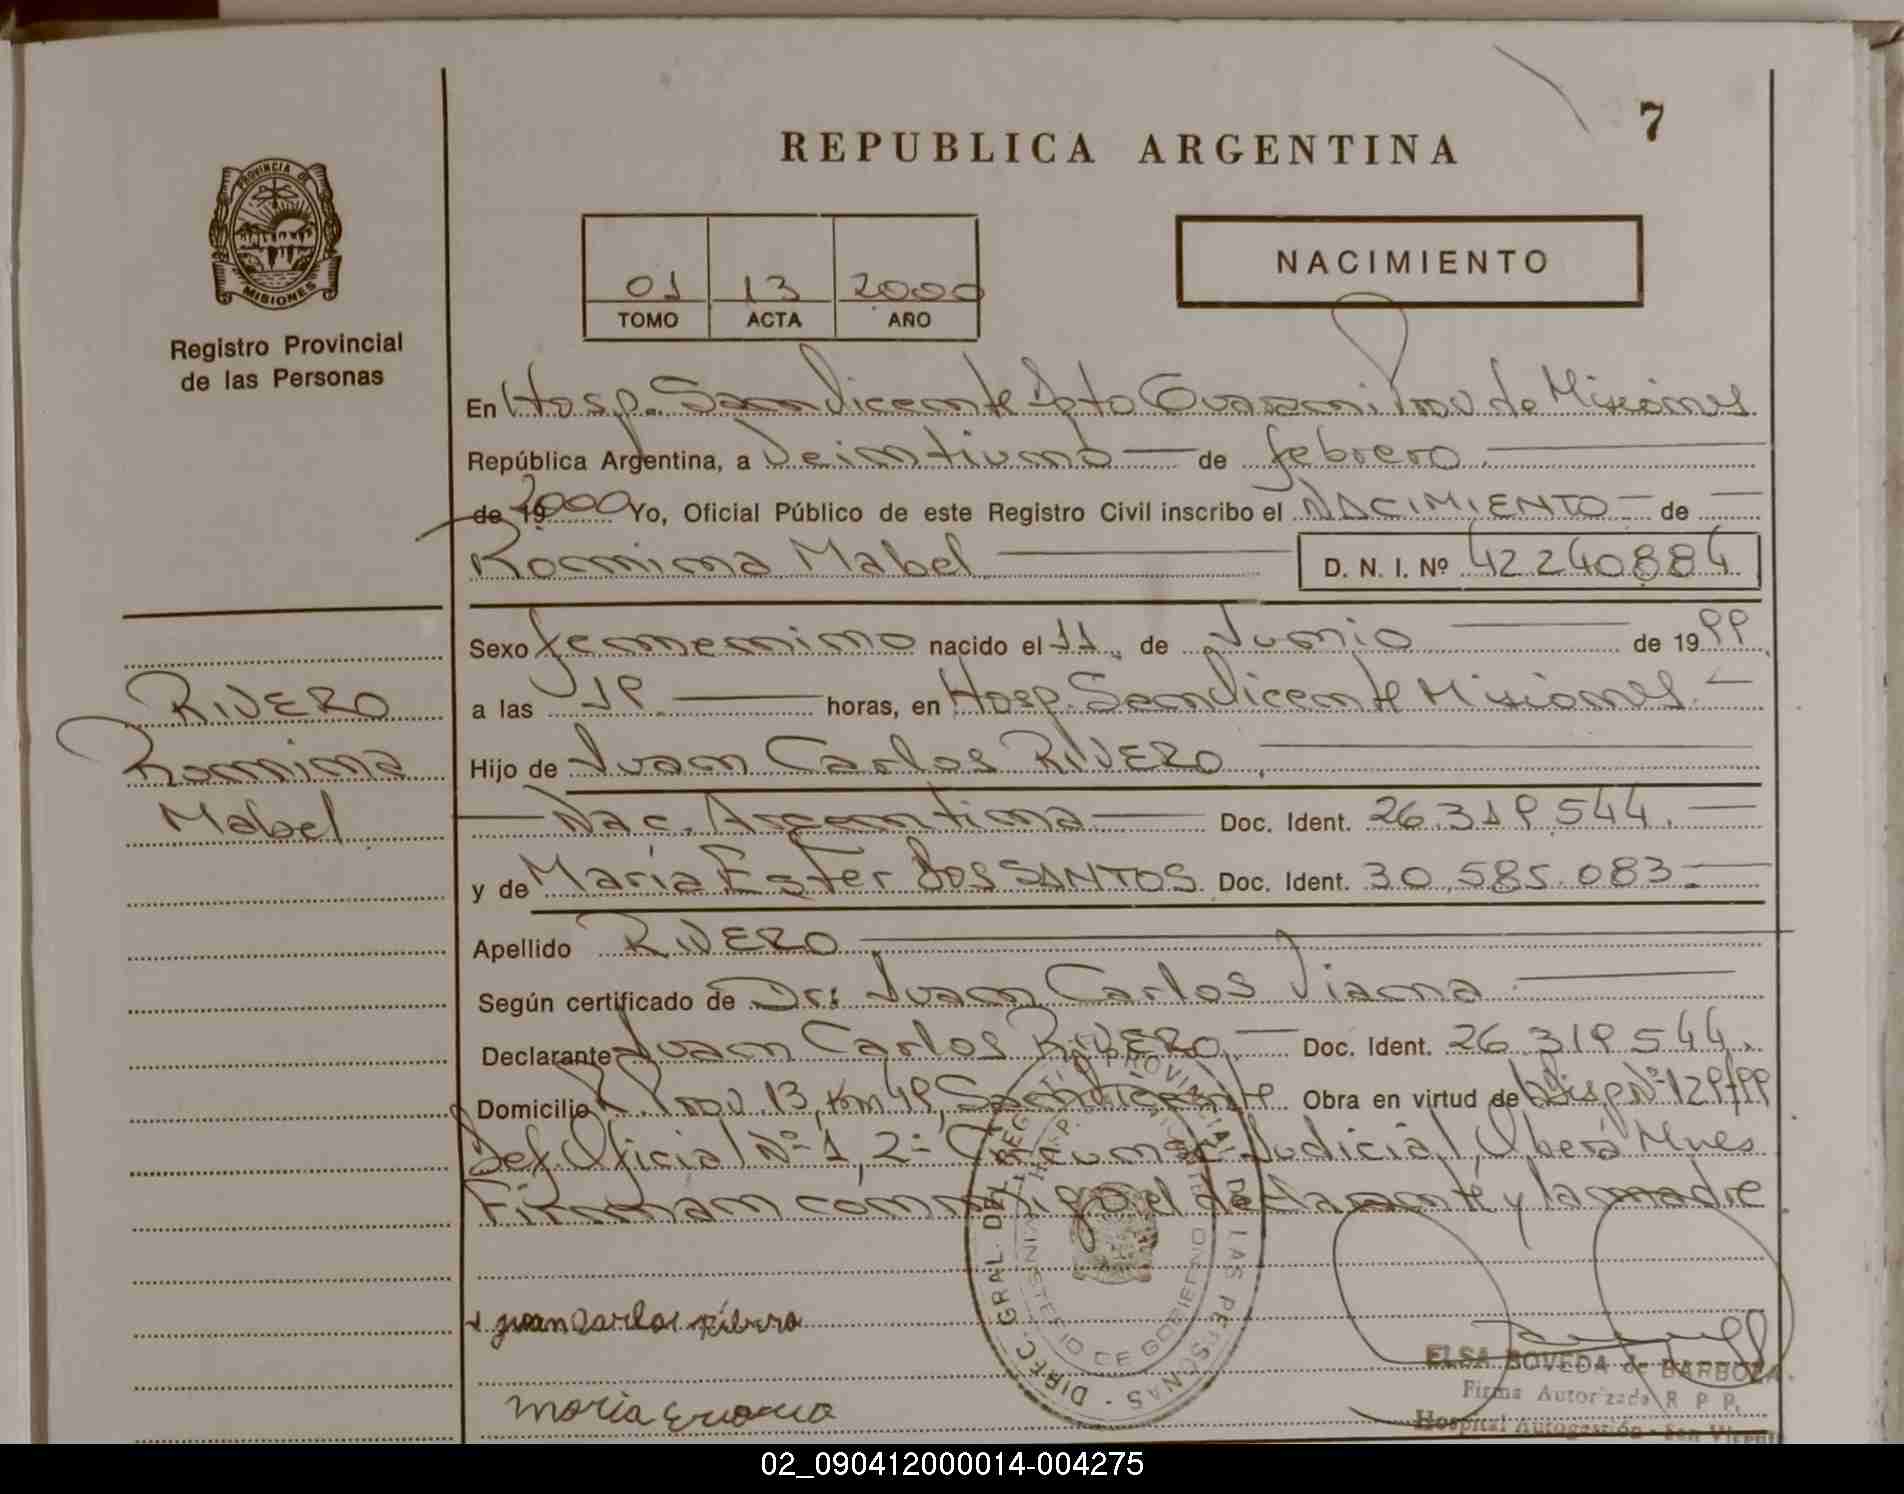 7
REPUBLICA ARGENTINA
PROVINCIA DE
MISIONES
Registro Provincial
de las Personas
01 13 2000
TOMO ACTA AÑO
NACIMIENTO
En Hosp. San Vicente Dpto Guaraní Prov de Misiones
República Argentina, a Veintiuno de febrero
de 19 2000 Yo, Oficial Público de este Registro Civil inscribo el NACIMIENTO de
Romina Mabel D. N. I. Nº 42240884
Sexo femenino nacido el 11 de Junio de 1999
a las 19 horas, en Hosp. San Vicente Misiones
Hijo de Juan Carlos RIVERO
Nac. Argentina Doc. Ident. 26.319.544
y de María Ester DOS SANTOS Doc. Ident. 30.585.083
Apellido RIVERO
Según certificado de Dr: Juan Carlos Viana
Declarante Juan Carlos RIVERO Doc. Ident. 26.319.544
Domicilio R. Prov. 13, Km 49, San Vicente Obra en virtud de Disp Nº 129/99
Def. Oficial Nº 1, 2º Circunsc Judicial, Oberá Mnes
Firman conmigo el declarante y la madre
RIVERO
Romina
Mabel
juan Carlos ribero
maria
DIREC. GRAL. DEL REGISTRO PROVINCIAL DE LAS PERSONAS
MINISTERIO DE GOBIERNO
ELSA BOVEDA de BARBOZA
Firma Autorizada R. P. P.
Hospital Autogestión - San Vicente
02_090412000014-004275